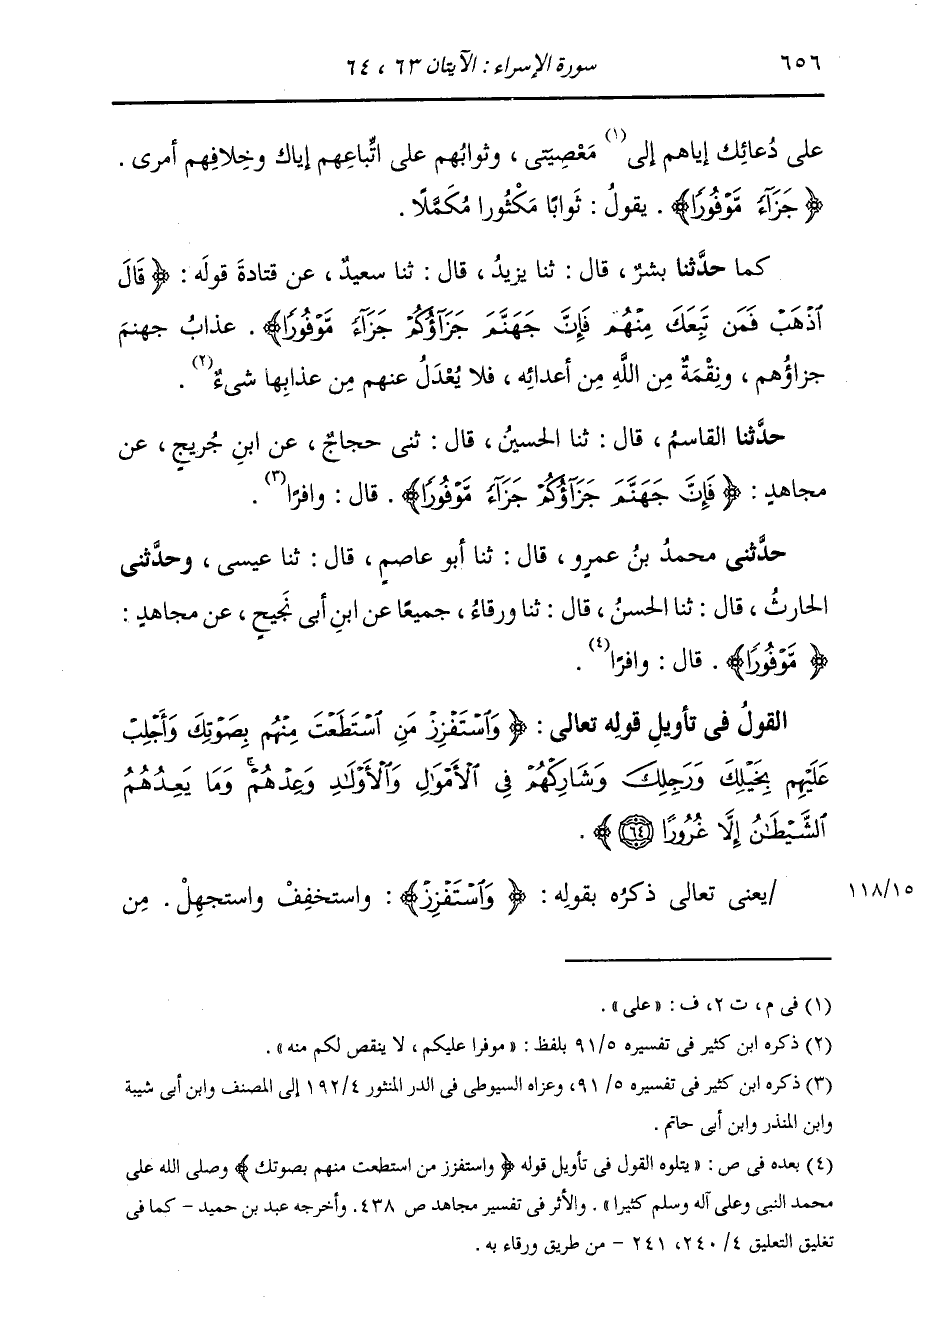 ٦٥٦
سورة الإسراء : الآيتان ٦٣ ، ٦٤
على دُعائِك إياهم إلى(١) مَعْصِيَتى ، وثوابُهم على اتِّباعِهم إياك وخِلافِهم أمرى .
﴿ جَزَآءً مَّوْفُورًا﴾ . يقولُ : ثَوابًا مَكْثُورا مُكَمَّلًا .
كما حدَّثنا بشرٌ ، قال : ثنا يزيدُ ، قال : ثنا سعيدٌ ، عن قتادةَ قولَه : ﴿ قَالَ
ٱذْهَبْ فَمَن تَبِعَكَ مِنْهُمْ فَإِنَّ جَهَنَّمَ جَزَآؤُكُمْ جَزَآءً مَّوْفُورًا﴾ . عذابُ جهنمَ
جزاؤُهم ، ونِقْمَةٌ مِن اللَّهِ مِن أعدائِه ، فلا يُعْدَلُ عنهم مِن عذابِها شىءٌ(٢) .
حدَّثنا القاسمُ ، قال : ثنا الحسينُ ، قال : ثنى حجاجٌ ، عن ابنِ جُريجٍ ، عن
مجاهدٍ : ﴿ فَإِنَّ جَهَنَّمَ جَزَآؤُكُمْ جَزَآءً مَّوْفُورًا﴾ . قال : وافرًا(٣) .
حدَّثنى محمدُ بنُ عمرٍو ، قال : ثنا أبو عاصمٍ ، قال : ثنا عيسى ، وحدَّثنى
الحارثُ ، قال : ثنا الحسنُ ، قال : ثنا ورقاءُ ، جميعًا عن ابنِ أبى نَجيحٍ ، عن مجاهدٍ :
﴿ مَّوْفُورًا﴾ . قال : وافرًا(٤) .
القولُ فى تأويلِ قولِه تعالى : ﴿ وَٱسْتَفْزِزْ مَنِ ٱسْتَطَعْتَ مِنْهُم بِصَوْتِكَ وَأَجْلِبْ
عَلَيْهِم بِخَيْلِكَ وَرَجِلِكَ وَشَارِكْهُمْ فِى ٱلْأَمْوَٰلِ وَٱلْأَوْلَٰدِ وَعِدْهُمْۚ وَمَا يَعِدُهُمُ
ٱلشَّيْطَٰنُ إِلَّا غُرُورًا ٦٤ ﴾ .
١١٨/١٥
/يعنى تعالى ذكرُه بقولِه : ﴿ وَٱسْتَفْزِزْ﴾ : واستخفِفْ واستجهِلْ . مِن
(١) فى م ، ت ٢، ف : « على » .
(٢) ذكره ابن كثير فى تفسيره ٩١/٥ بلفظ : « موفرا عليكم ، لا ينقص لكم منه » .
(٣) ذكره ابن كثير فى تفسيره ٥/ ٩١، وعزاه السيوطى فى الدر المنثور ١٩٢/٤ إلى المصنف وابن أبى شيبة
وابن المنذر وابن أبى حاتم .
(٤) بعده فى ص : « يتلوه القول فى تأويل قوله ﴿ واستفزز من استطعت منهم بصوتك ﴾ وصلى الله على
محمد النبى وعلى آله وسلم كثيرا » . والأثر فى تفسير مجاهد ص ٤٣٨. وأخرجه عبد بن حميد – كما فى
تغليق التعليق ٤/ ٢٤٠، ٢٤١ – من طريق ورقاء به .